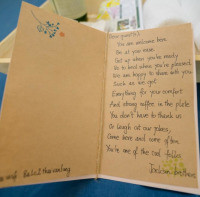 Dear guest(s),
You are welcome here.
Be at your ease.
Get up when you're ready
Go to bed when you're pleased.
We are happy to share with you
Such as we got
Everything for your comfort
And strong coffee in the plate
You don't have to thank us
Or laugh at our jokes,
Come here and come often
You're one of the